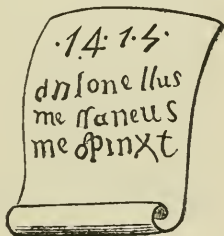 ·1·4·1·5·
antonellus
messaneus
me pinxt